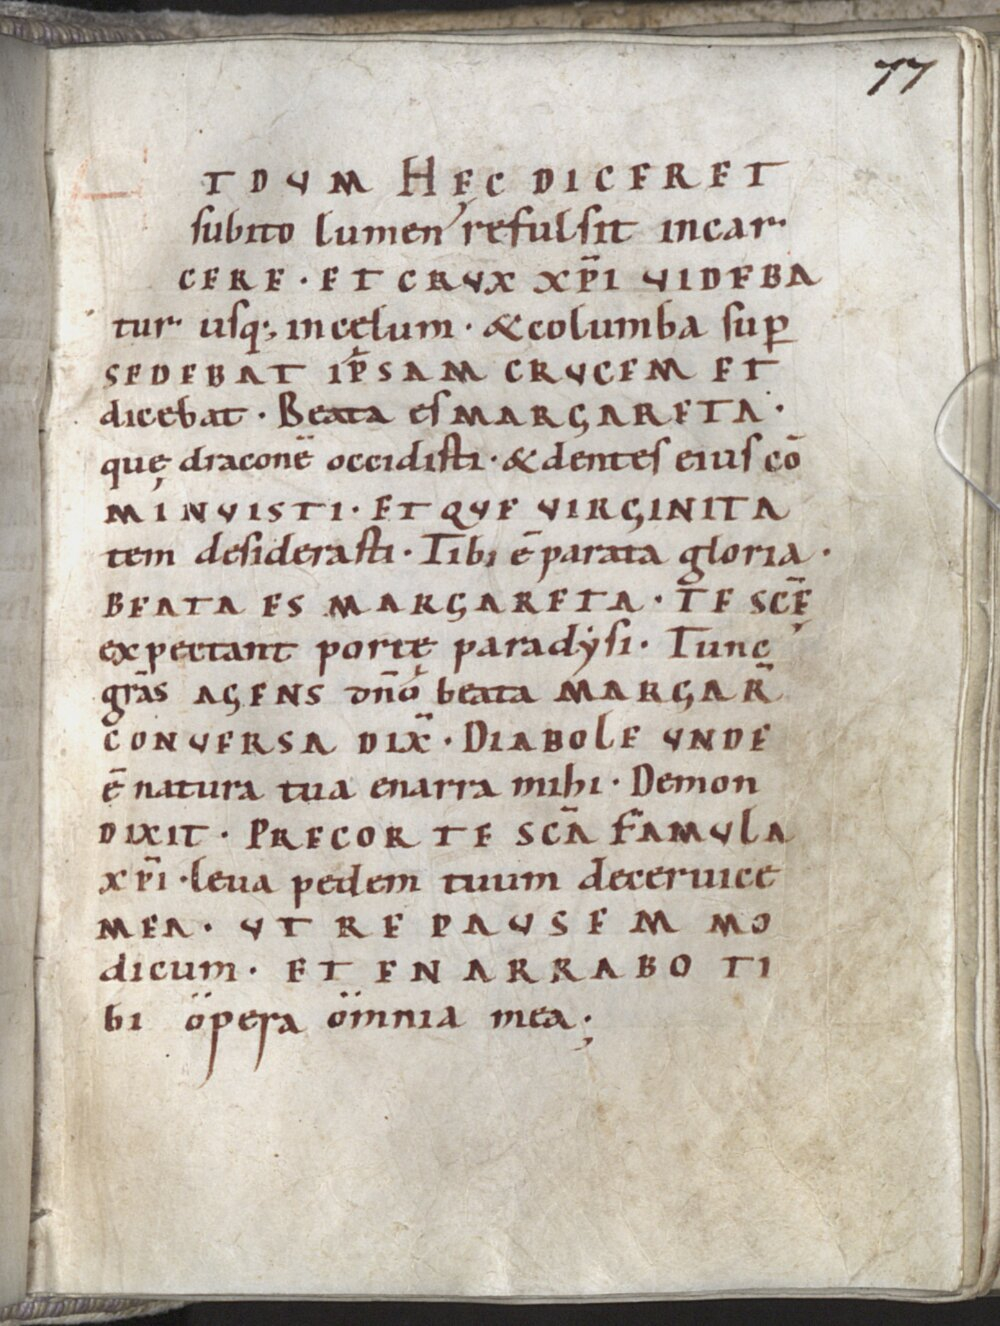 77
T DUM HĘC DICERET
subito lumen refulsit incar
CERE · ET CRUX XP̄I UIDEBA
tur usq; incęlum · & columba sup̄
SEDEBAT IP̄SAM CRUCEM ET
dicebat · Beata es MARGARETA ·
quę draconē occidisti · & dentes eius cō
MINUISTI · ET QUE VIRGINITA
tem desiderasti · Tibi ē parata gloria ·
BEATA ES MARGARETA · TE SC̄Ę
expectant portę paradẏsi · Tunc
gr̄as AGENS dn̄o beata MARGAR̄
CONUERSA DIX̄ · DIABOLE UNDE
ē natura tua enarra mihi · Demon
DIXIT · PRECOR TE SC̄A FAMULA
xp̄i · leua pedem tuum deceruice
MEA · UT REPAUSEM MO
dicum · ET ENARRABO TI
bi opera omnia mea ;